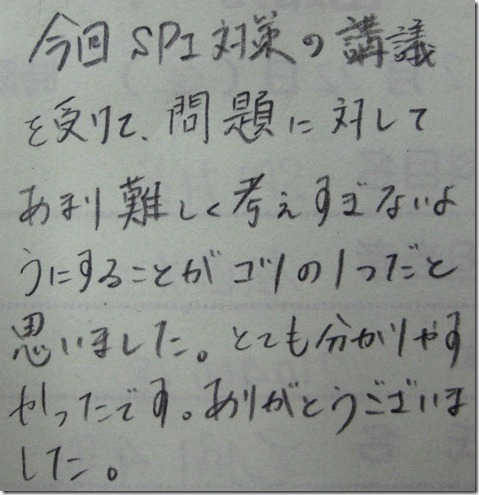 今回SPI対策の講議
を受けて、問題に対して
あまり難しく考えすぎないよ
うにすることがコツの1つだと
思いました。とても分かりやす
かったです。ありがとうございま
した。